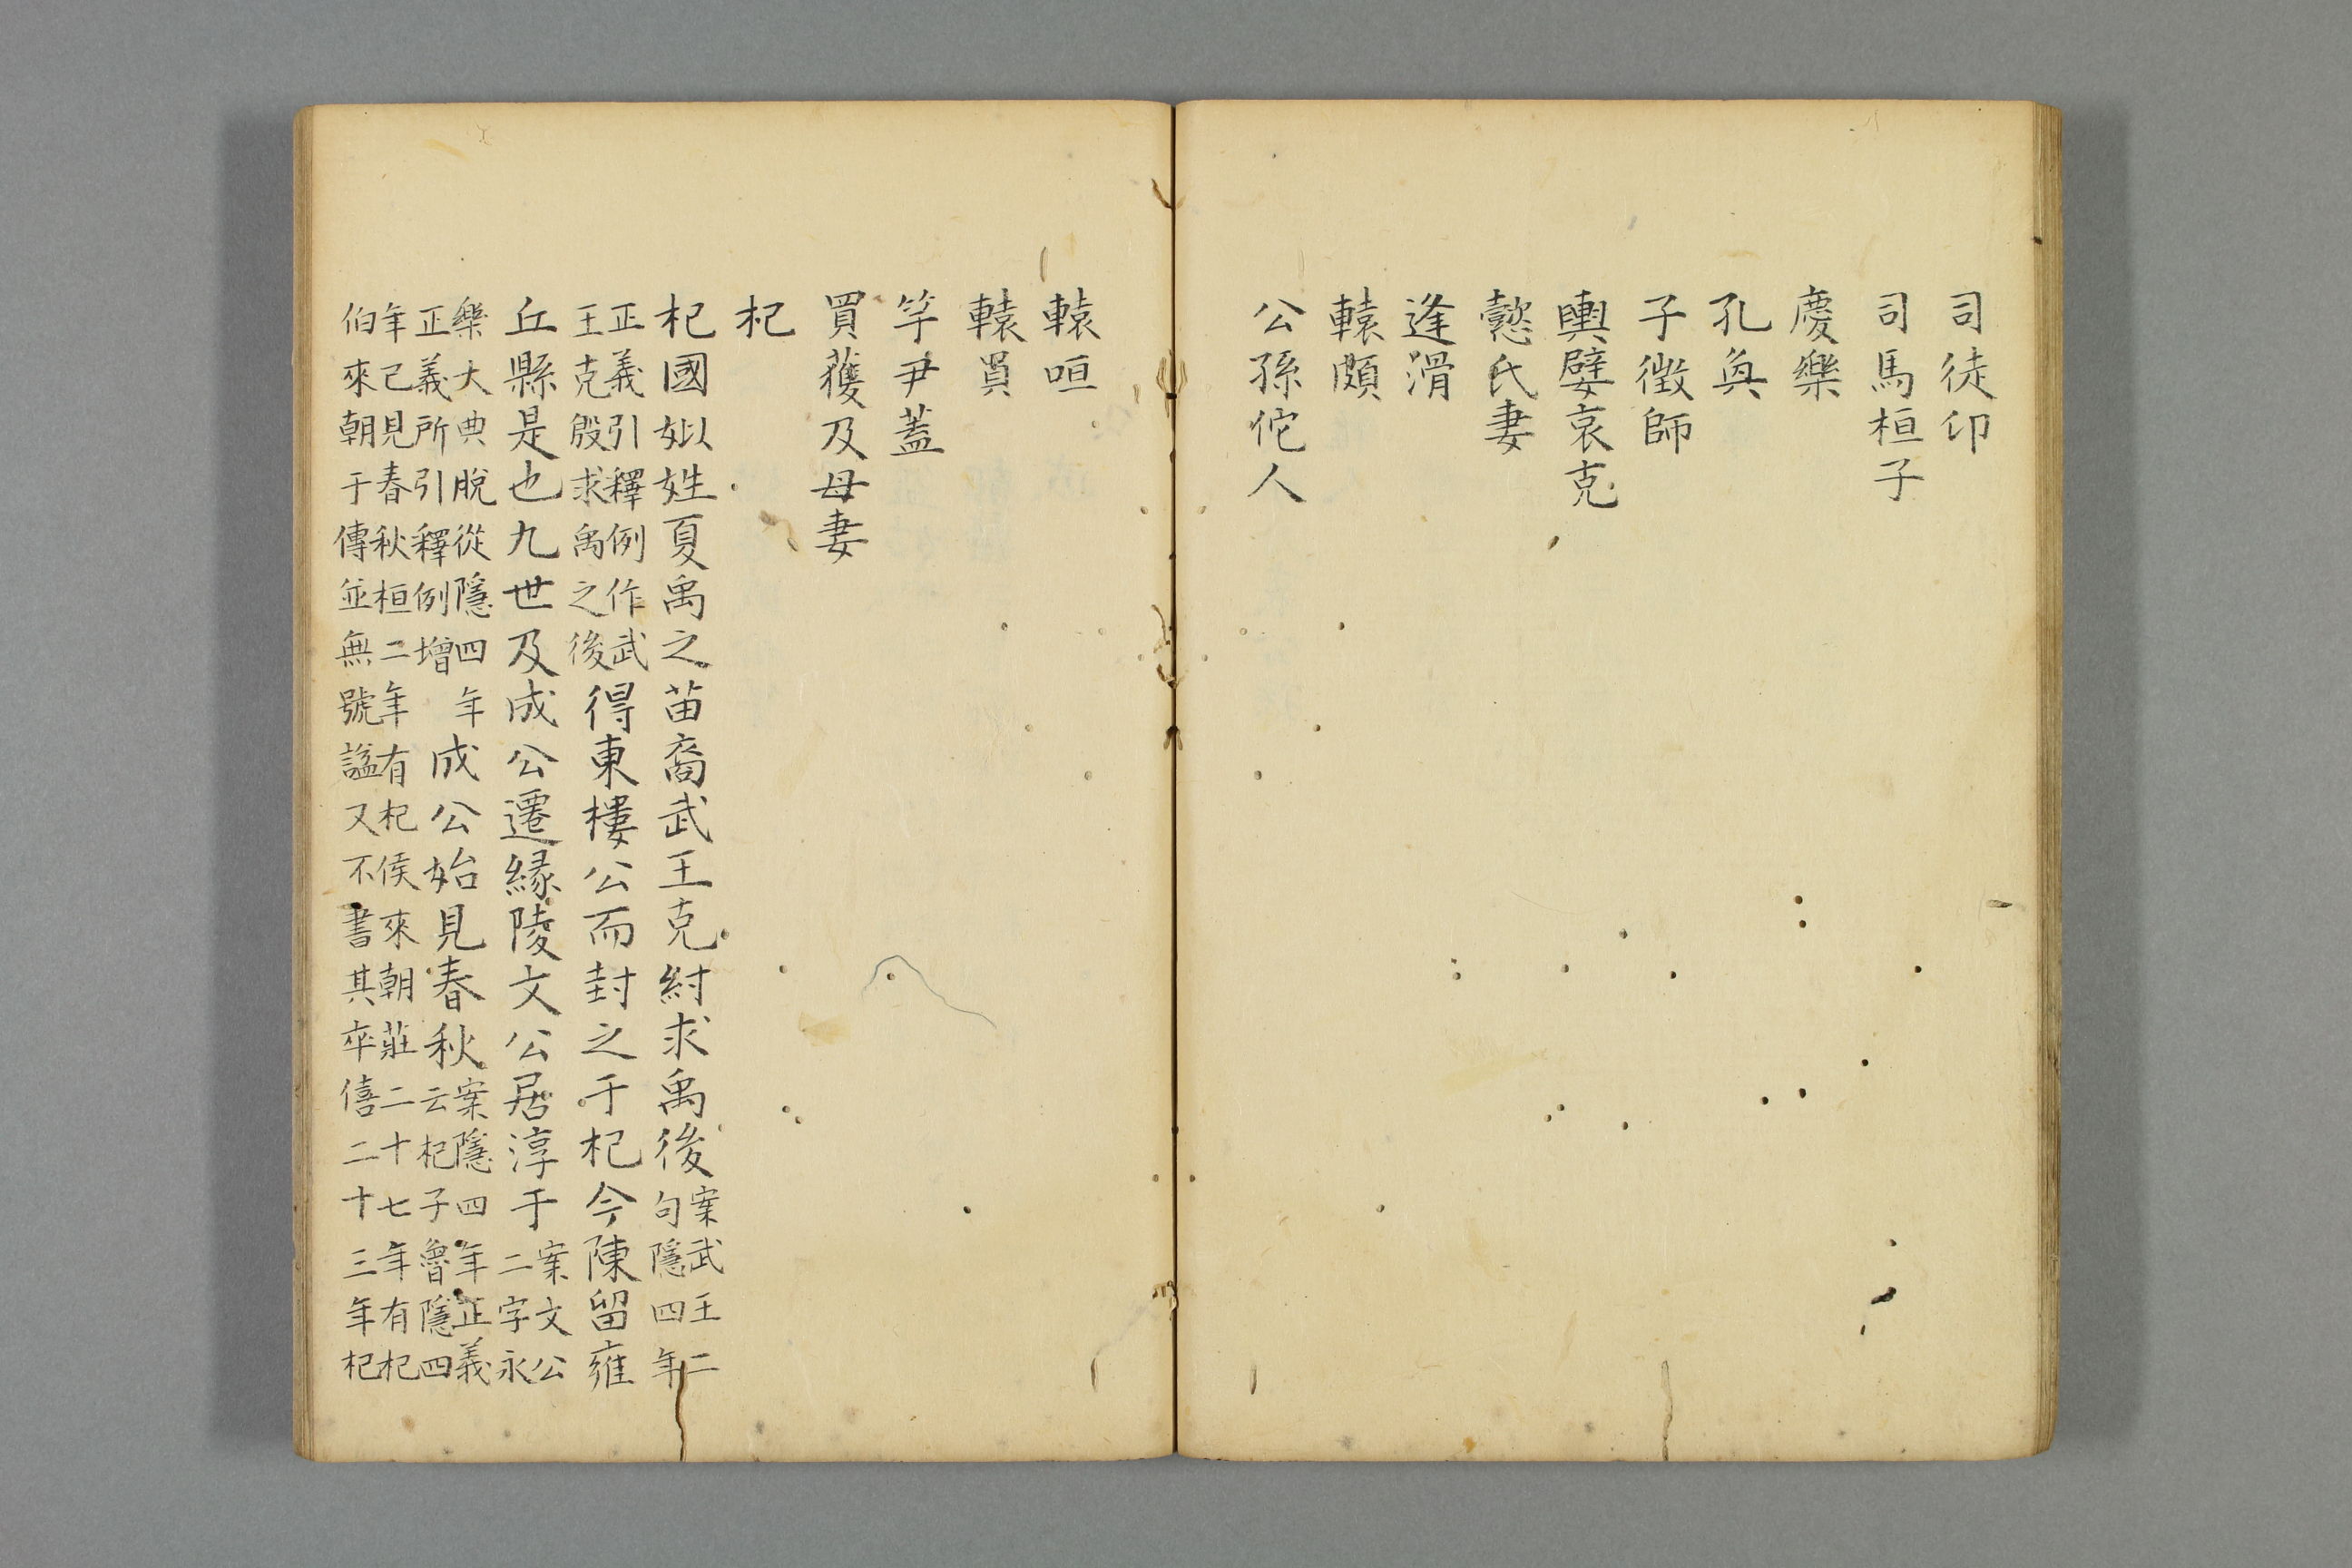 司徒卬
司馬桓子
慶樂
孔奐
子徵師
輿嬖袁克
懿氏妻
逢滑
轅頗
公孫佗人
轅咺
轅買
竽尹蓋
買獲及母妻
杞
杞國姒姓夏禹之苗裔武王克紂求禹後案武王二句隱四年
正義引釋例作武王克殷求禹之後得東樓公而封之于杞今陳留雍
丘縣是也九世及成公遷緣陵文公居淳于案文公二字永
樂大典脫從隱四年正義所引釋例增成公始見春秋案隱四年正義云杞子魯隱四
年已見春秋桓二年有杞侯來朝莊二十七年有杞
伯來朝于傳並無號諡又不書其卒僖二十三年杞